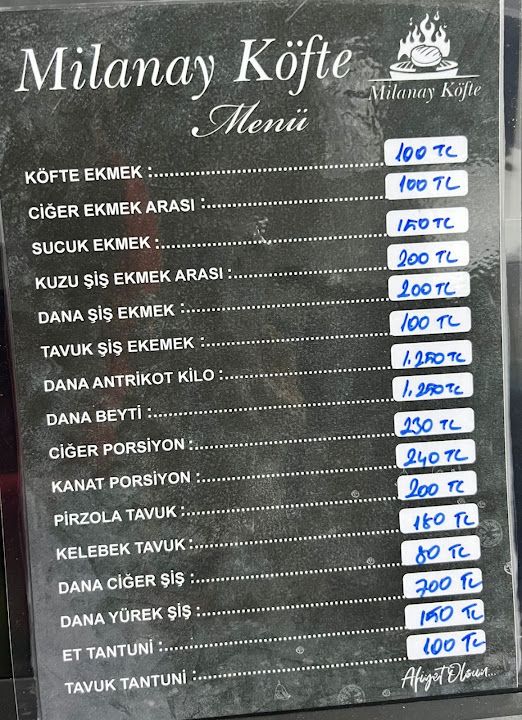 Milanay Köfte
Milanay Köfte
Menü
KÖFTE EKMEK :.......... 100 TL
CİĞER EKMEK ARASI :.......... 100 TL
SUCUK EKMEK :.......... 150 TL
KUZU ŞİŞ EKMEK ARASI :.......... 200 TL
DANA ŞİŞ EKMEK :.......... 200 TL
TAVUK ŞİŞ EKEMEK :.......... 100 TL
DANA ANTRİKOT KİLO :.......... 1.250 TL
DANA BEYTİ :.......... 1.250 TL
CİĞER PORSİYON :.......... 230 TL
KANAT PORSİYON :.......... 240 TL
PİRZOLA TAVUK :.......... 200 TL
KELEBEK TAVUK :.......... TL
DANA CİĞER ŞİŞ :.......... 80 TL
DANA YÜREK ŞİŞ :.......... 700 TL
ET TANTUNİ :.......... 150 TL
TAVUK TANTUNİ :.......... 100 TL
Afiyet Olsun...